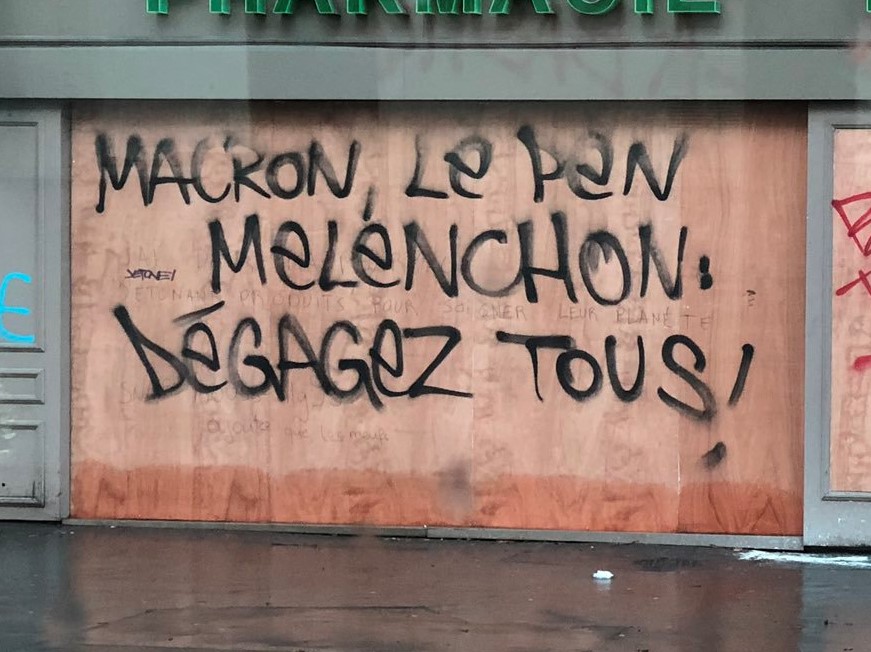 PHARMACIE
MACRON, Le PeN
MeLéNCHON:
DéGAGeZ TOUS!
PRODUITS POUR SOIGNER LEUR PLANÈTE